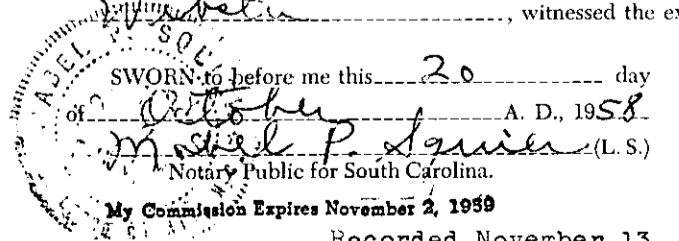 Webster, witnessed the ex
SWORN to before me this 20 day
of October A. D., 1958
Mabel P. Squier (L. S.)
Notary Public for South Carolina.
My Commission Expires November 2, 1959
Recorded November 13